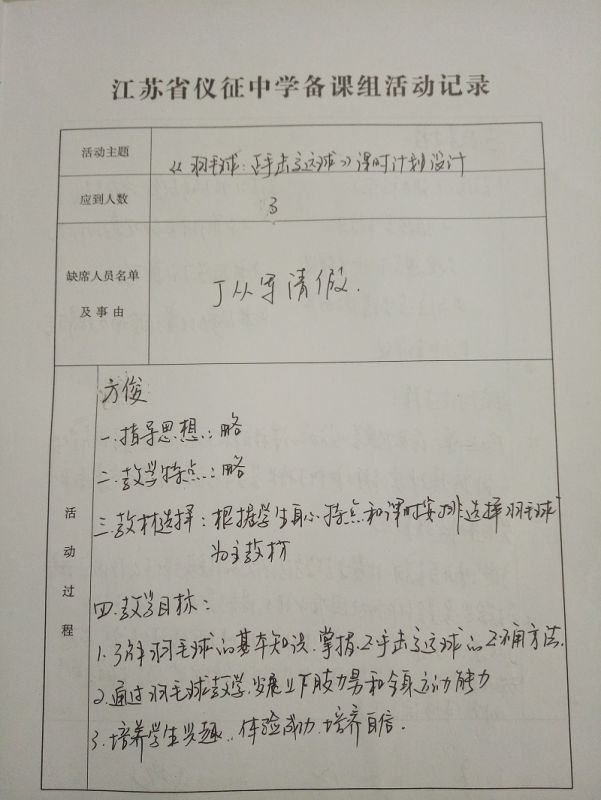 江苏省仪征中学备课组活动记录
活动主题
《羽毛球:正手击高远球》课时计划设计
应到人数
3
缺席人员名单
及事由
丁从军请假.
活动过程
方俊
一.指导思想:略
二.教学特点:略
三.教材选择:根据学生身心特点和课时安排选择羽毛球
为主教材
四.教学目标:
1.了解羽毛球的基本知识.掌握正手击高远球的正确方法.
2.通过羽毛球教学.发展上下肢力量和全身运动能力
3.培养学生兴趣..体验成功.培养自信.